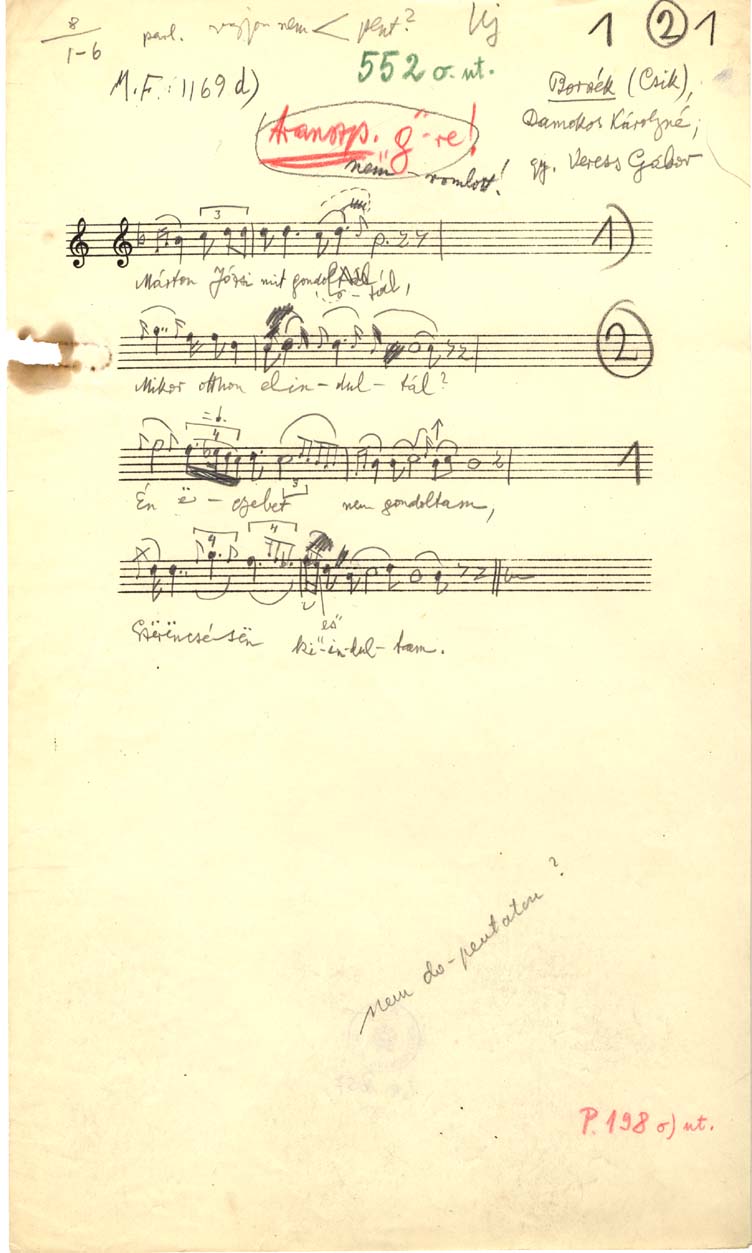 8
1-6
parl. vagyon nem < pent?
Uj
1 2 1
M.F.: 1169 d)
552 o. ut.
Borszék (Csik),
Damokos Károlyné,
gy. Veress Gábor
transzp. g"-re!
nem romlott!
3
1)
Márton Józsi mit gondol-tál,
2
Mikor otthon el in-dul-tál?
4
1
Én ë-gyebet nem gondoltam,
3
4 4
Szërëncsé-sën ki-in-dul-tam.
el
nem do-pentaton?
P. 198 o) ut.